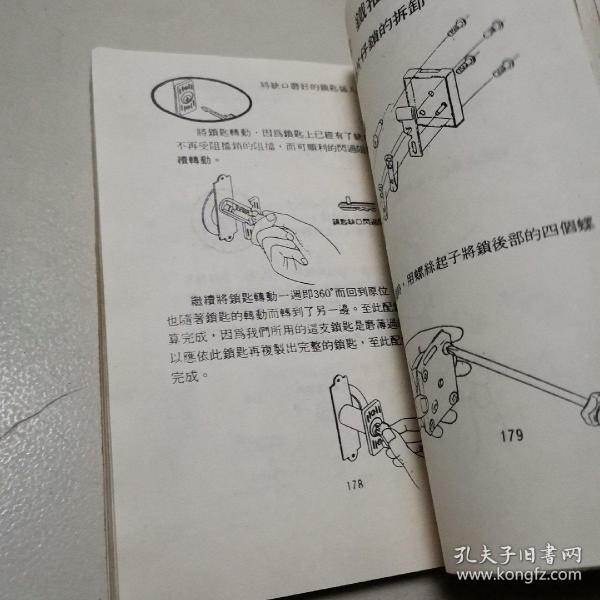 將缺口磨好的鎖匙插入
將鎖匙轉動，因爲鎖匙上已經有了缺
不再受阻擋鎖的阻擋，而可順利的閃過阻
續轉動。
鎖匙缺口閃過
繼續將鎖匙轉動一週即360°而回到原位，
也隨著鎖匙的轉動而轉到了另一邊。至此配
算完成，因爲我們所用的這支鎖匙是磨薄過
以應依此鎖匙再複製出完整的鎖匙，至此配
完成。
178
仔鎖的拆卸
，用螺絲起子將鎖後部的四個螺
179
孔夫子旧書网
www.kongfz.com